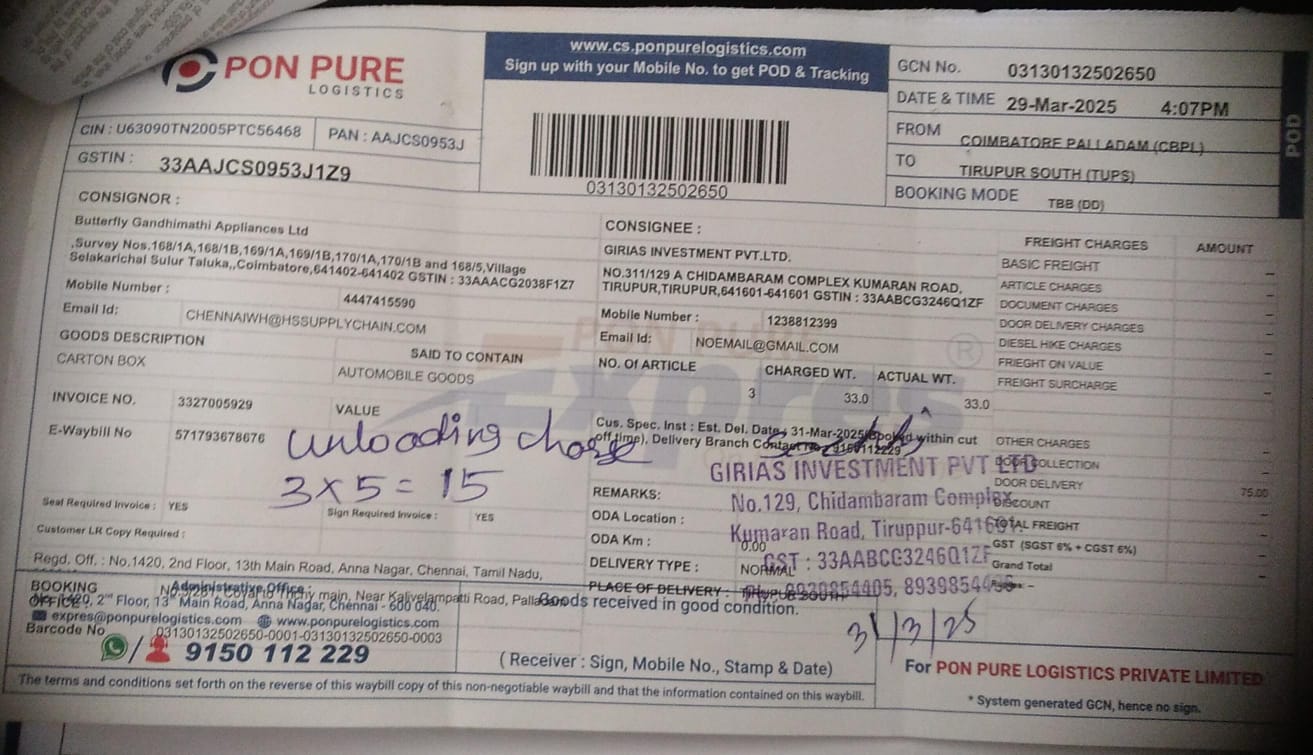 PON PURE
LOGISTICS
www.cs.ponpurelogistics.com
Sign up with your Mobile No. to get POD & Tracking
GCN No. 03130132502650
DATE & TIME 29-Mar-2025 4:07PM
FROM COIMBATORE PALLADAM (CBPL)
TO TIRUPUR SOUTH (TUPS)
BOOKING MODE TBB (DD)
POD
CIN : U63090TN2005PTC56468
PAN : AAJCS0953J
GSTIN : 33AAJCS0953J1Z9
03130132502650
CONSIGNOR :
Butterfly Gandhimathi Appliances Ltd
,Survey Nos.168/1A,168/1B,169/1A,169/1B,170/1A,170/1B and 168/5,Village
Selakarichal Sulur Taluka,,Coimbatore,641402-641402 GSTIN : 33AAACG2038F1Z7
Mobile Number : 4447415590
Email Id: CHENNAIWH@HSSUPPLYCHAIN.COM
CONSIGNEE :
GIRIAS INVESTMENT PVT.LTD.
NO.311/129 A CHIDAMBARAM COMPLEX KUMARAN ROAD,
TIRUPUR,TIRUPUR,641601-641601 GSTIN : 33AABCG3246Q1ZF
Mobile Number : 1238812399
Email Id: NOEMAIL@GMAIL.COM
GOODS DESCRIPTION
CARTON BOX
SAID TO CONTAIN
AUTOMOBILE GOODS
NO. Of ARTICLE CHARGED WT. ACTUAL WT.
3 33.0 33.0
INVOICE NO. 3327005929
VALUE
E-Waybill No 571793678676
unloading charge
3 x 5 = 15
Seal Required Invoice : YES
Sign Required Invoice : YES
Customer LR Copy Required :
Cus. Spec. Inst : Est. Del. Date : 31-Mar-2025(Booked within cut
off time), Delivery Branch Contact No : 9150112229
REMARKS:
ODA Location :
ODA Km : 0.00
DELIVERY TYPE : NORMAL
PLACE OF DELIVERY : TIRUPUR SOUTH
GIRIAS INVESTMENT PVT LTD
No.129, Chidambaram Complex
Kumaran Road, Tiruppur-641601.
GST : 33AABCG3246Q1ZF
8939854405,
FREIGHT CHARGES AMOUNT
BASIC FREIGHT –
ARTICLE CHARGES –
DOCUMENT CHARGES –
DOOR DELIVERY CHARGES –
DIESEL HIKE CHARGES –
FRIEGHT ON VALUE –
FREIGHT SURCHARGE –
OTHER CHARGES –
DOOR COLLECTION –
DOOR DELIVERY 75.00
DISCOUNT –
TOTAL FREIGHT –
GST (SGST 6% + CGST 6%) –
Grand Total –
Rupees: –
PON PURE
Expres
®
Regd. Off. : No.1420, 2nd Floor, 13th Main Road, Anna Nagar, Chennai, Tamil Nadu,
BOOKING
OFFICE
main, Near Kalivelampatti Road, Palladam
Administrative Office :
No.1420, 2nd Floor, 13th Main Road, Anna Nagar, Chennai - 600 040.
expres@ponpurelogistics.com www.ponpurelogistics.com
Barcode No 03130132502650-0001-03130132502650-0003
9150 112 229
Goods received in good condition.
31/3/25
( Receiver : Sign, Mobile No., Stamp & Date)
For PON PURE LOGISTICS PRIVATE LIMITED
* System generated GCN, hence no sign.
The terms and conditions set forth on the reverse of this waybill copy of this non-negotiable waybill and that the information contained on this waybill.